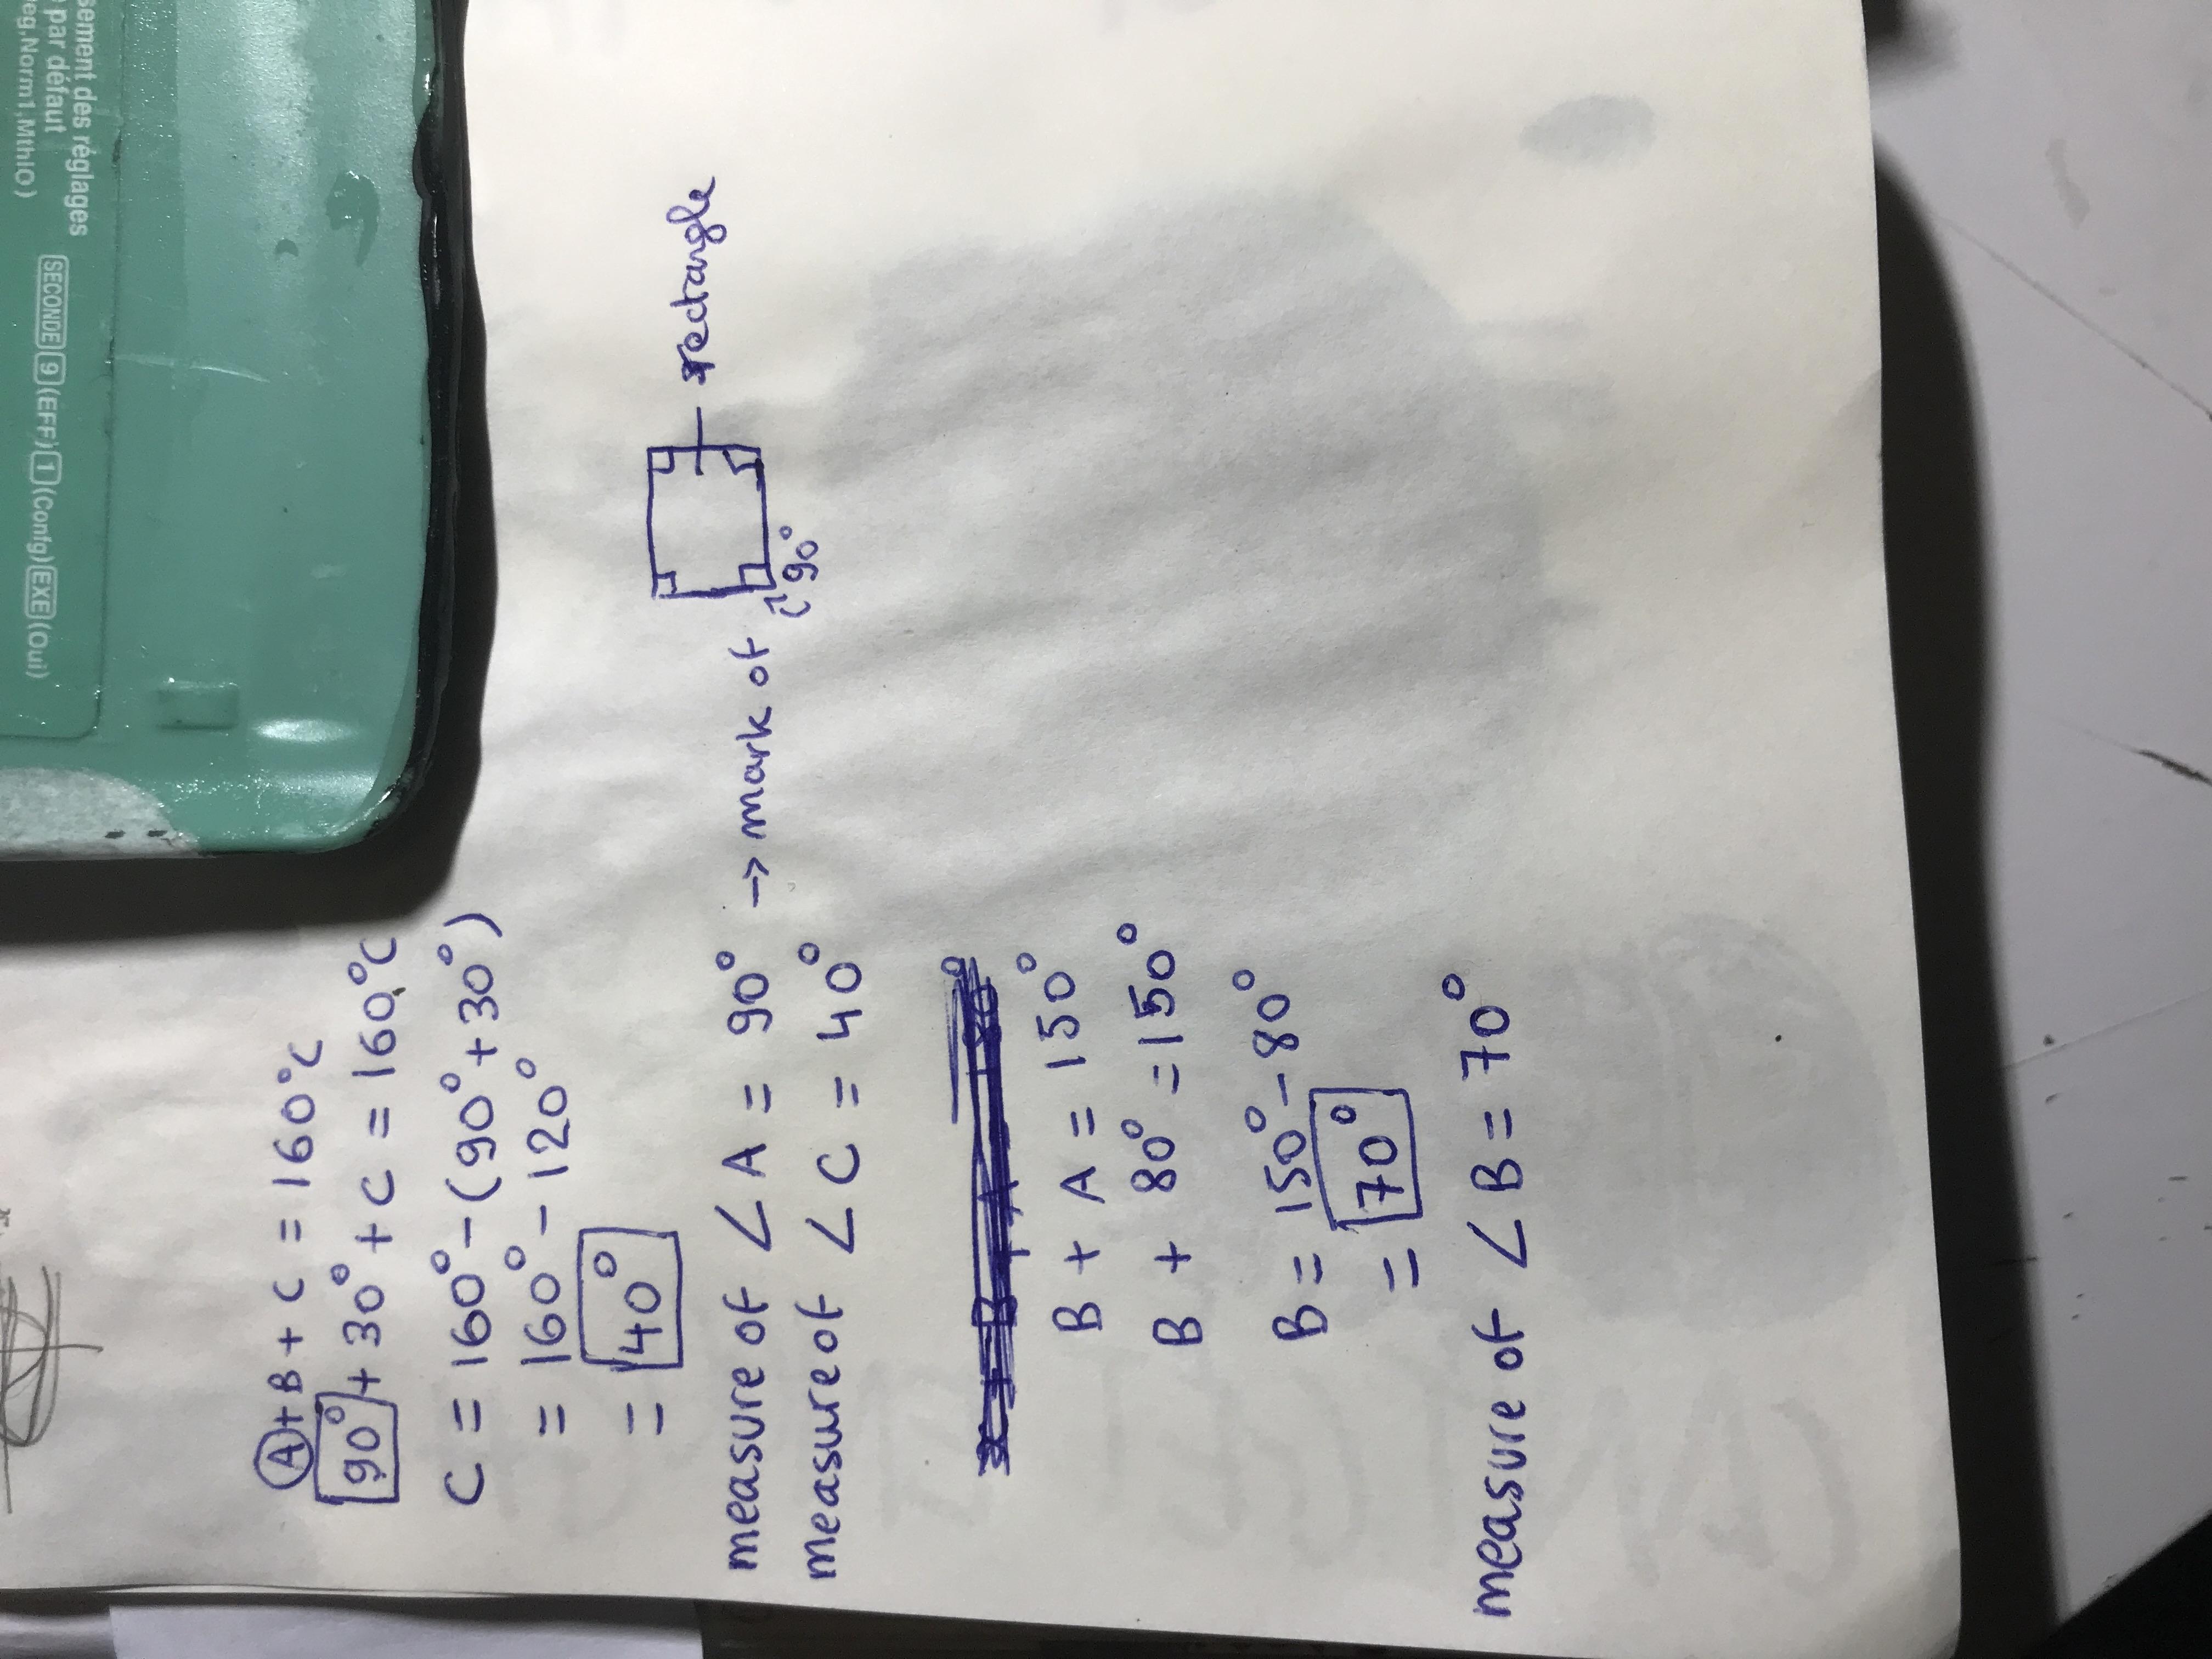 sement des réglages
par défaut
eg,Norm1,MthIO)
SECONDE 9 (EFF) 1 (Confg) EXE (Oui)
A + B + C = 160°C
90° + 30° + C = 160°C
C = 160° - (90° + 30°)
= 160° - 120°
= 40°
measure of ∠ A = 90° → mark of
90°
rectangle
measure of ∠ C = 40°
B + A = 150°
B + 80° = 150°
B = 150° - 80°
= 70°
measure of ∠ B = 70°